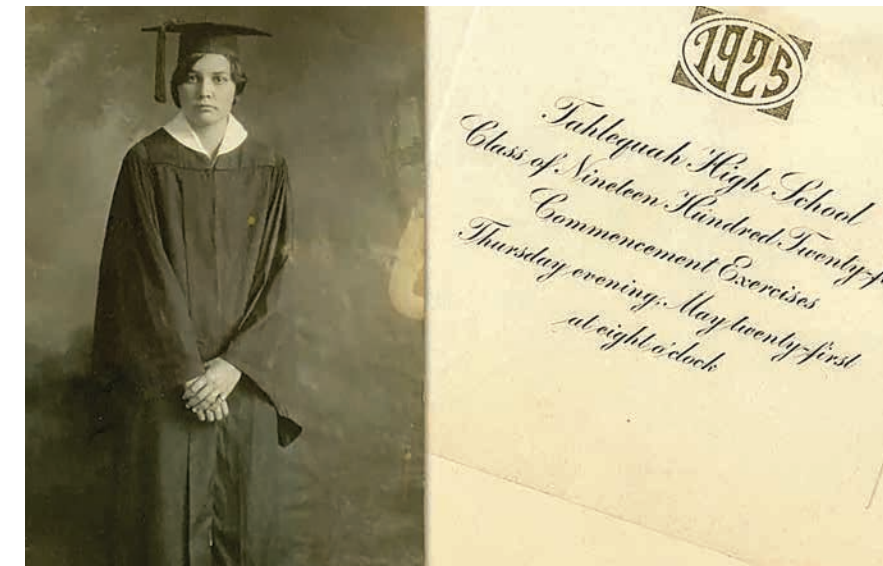 1925
Tahlequah High School
Class of Nineteen Hundred
Commencement Exercises
Thursday evening, May twenty-first
at eight o'clock